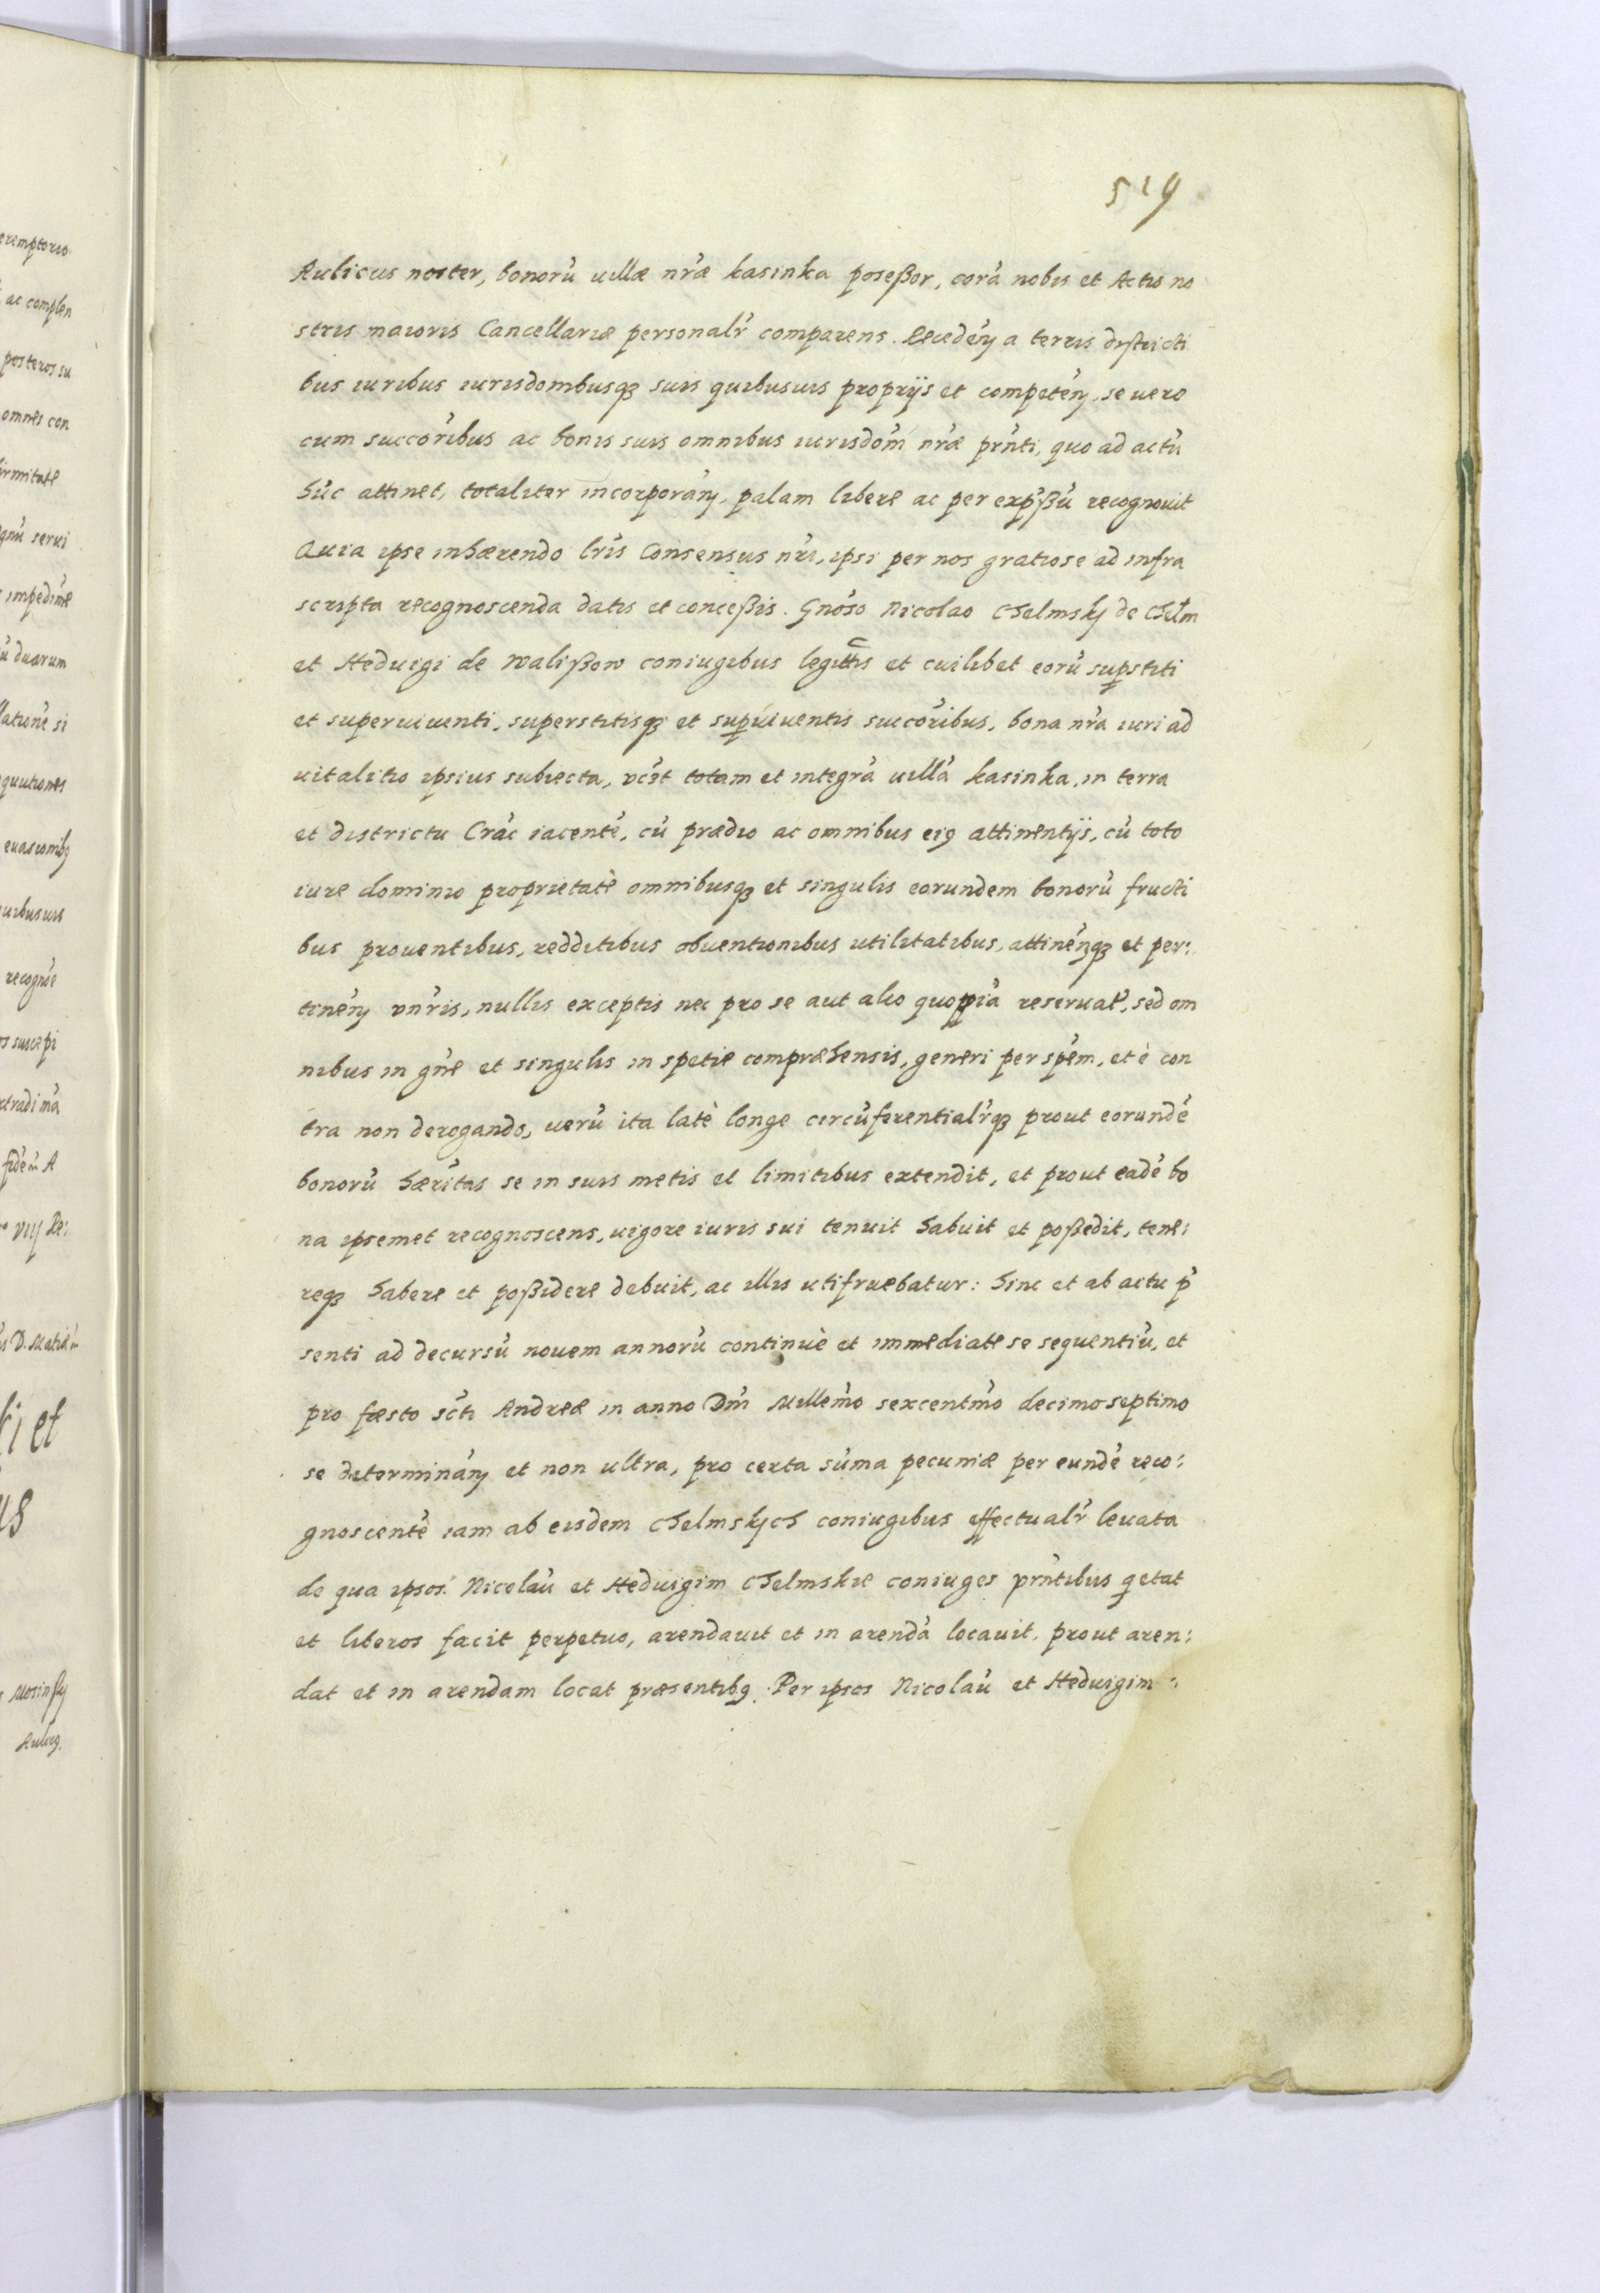 519
Aulicus noster, bonorũ uillæ nr̃æ kasinka poseßor, corã nobis et Actis no
stris maioris Cancellariæ personalr̃ comparens. Recedeñ a terris districti
bus iuribus iurisdoñibusq3 suis quibusuis proprijs et competeñ, se uero
cum succorĩbus ac bonis suis omnibus iurisdoñi nr̃æ prñti, quo ad actũ
hũc attinet, totaliter incorporañ, palam libere ac per expßũ recognouit
Quia ipse inhærendo lrĩs Consensus nr̃i, ipsi per nos gratiose ad infra
scripta recognoscenda datis et conceßis. Gnõso Nicolao Chelmskÿ de Chełm
et Heduigi de Walißow coniugibus legittĩs et cuilibet eorũ supstiti
et superuiuenti, superstitisq3 et supuiuentis succorĩbus, bona nr̃a iuri ad
uitalitio ipsius subiecta, vc̃st totam et integrã uillã kasinka, in terra
et districtu Crac̃ iacentẽ, cũ prædio ac omnibus ei9 attinentijs, cũ toto
iure dominio proprietatẽ omnibusq3 et singulis eorundem bonorũ fructi
bus prouentibus, redditibus obuentionibus utilitatibus, attineñq3 et per:
tineñ vnr̃is, nullis exceptis nec pro se aut alio quopiã reseruat̃, sed om
nibus in gñe et singulis in spetie compræhensis, generi per spẽm, et è con
tra non derogando, uerũ ita latè longe circũferentialr̃q3 prout eorundẽ
bonorũ hærĩtas se in suis metis et limitibus extendit, et prout eadẽ bo
na ipsemet recognoscens, uigore iuris sui tenuit habuit et poßedit, tene:
req3 habere et poßidere debuit, ac illis utifruebatur: hinc et ab actu p̃
senti ad decursũ nouem annorũ continuè et immediate se sequentiũ, et
pro fæsto sc̃ti Andreæ in anno Dñi Millem̃o sexcentm̃o decimoseptimo
se determinañ et non ultra, pro certa sũma pecuniæ per eundẽ reco:
gnoscentẽ iam ab eisdem Chelmskÿch coniugibus effectualr̃ leuata
de qua ipsos Nicolaũ et Heduigim Chelmskie coniuges prñtibus qetat
et liberos facit perpetuo, arendauit et in arendã locauit, prout aren:
dat et in arendam locat præsentib9. Per ipsos Nicolaũ et Heduigim :